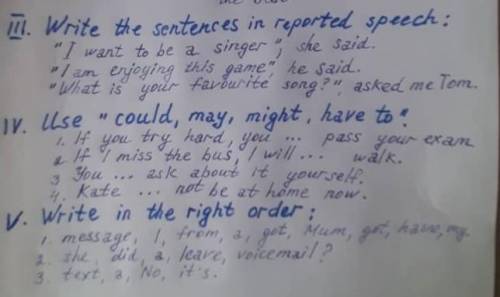 III. Write the sentences in reported speech:
"I want to be a singer", she said.
"I am enjoying this game", he said.
"What is your favourite song?", asked me Tom.
IV. Use "could, may, might, have to".
1. If you try hard, you ... pass your exam
2. If I miss the bus, I will ... walk.
3 You ... ask about it yourself.
4. Kate ... not be at home now.
V. Write in the right order:
1. message, I, from, a, got, Mum, got, have, my.
2. she, did, a, leave, voicemail?
3. text, a, No, it's.